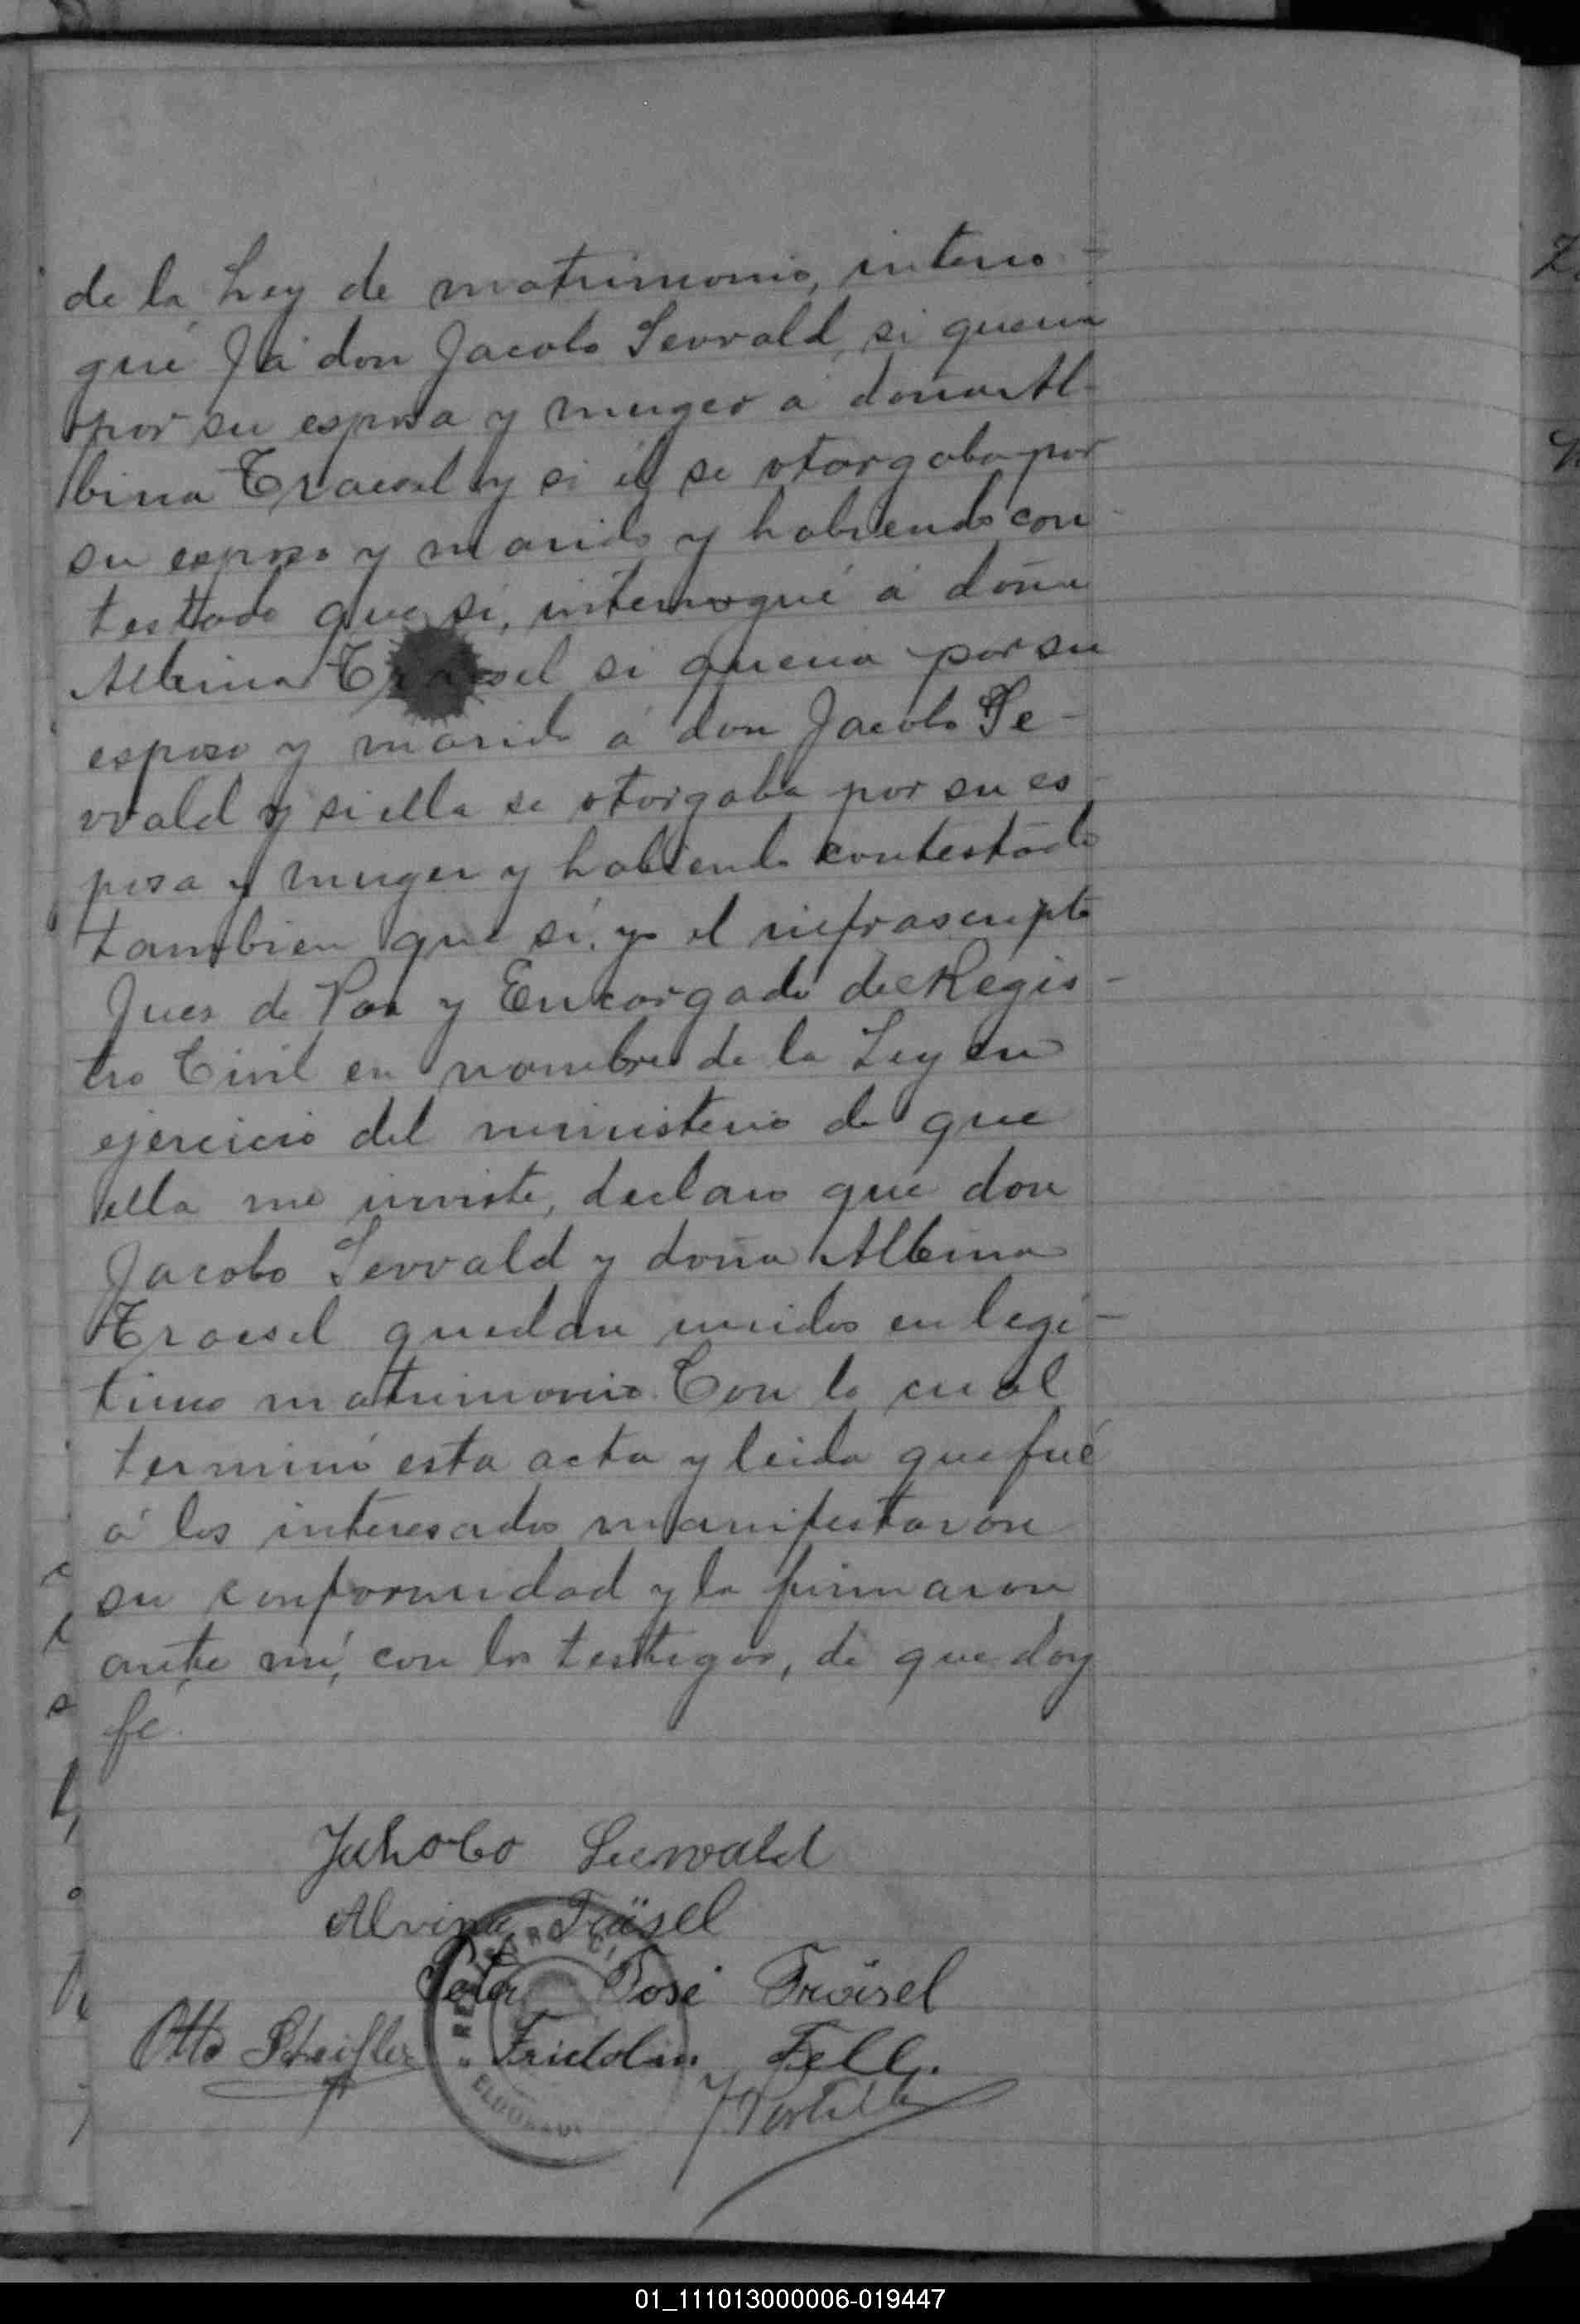 de la Ley de matrimonio, interro-
gué á don Jacobo Sewald, si queria
por su esposa y muger á doña Al-
bina Traesel y si él se otorgaba por
su esposo y marido y habiendo con-
testado que sí, interrogué á doña
Albina Traesel si queria por su
esposo y marido á don Jacobo Se-
wald y si ella se otorgaba por su es-
posa y muger y habiendo contestado
tambien que sí, yo el infrascripto
Juez de Paz y Encargado de Regis-
tro Civil en nombre de la Ley en
ejercicio del ministerio de que
ella me inviste, declaro que don
Jacobo Sewald y doña Albina
Traesel quedan unidos en legí-
timo matrimonio. Con lo cual
terminó esta acta y leida que fué
á los interesados manifestaron
su conformidad y la firmaron
ante mí, con los testigos, de que doy
fé.
Jakobo Seewald
Alvina Träsel
Peter José Träisel
Otto Fridolin Fell
REGISTRO CI
ELDORADO
01_111013000006-019447